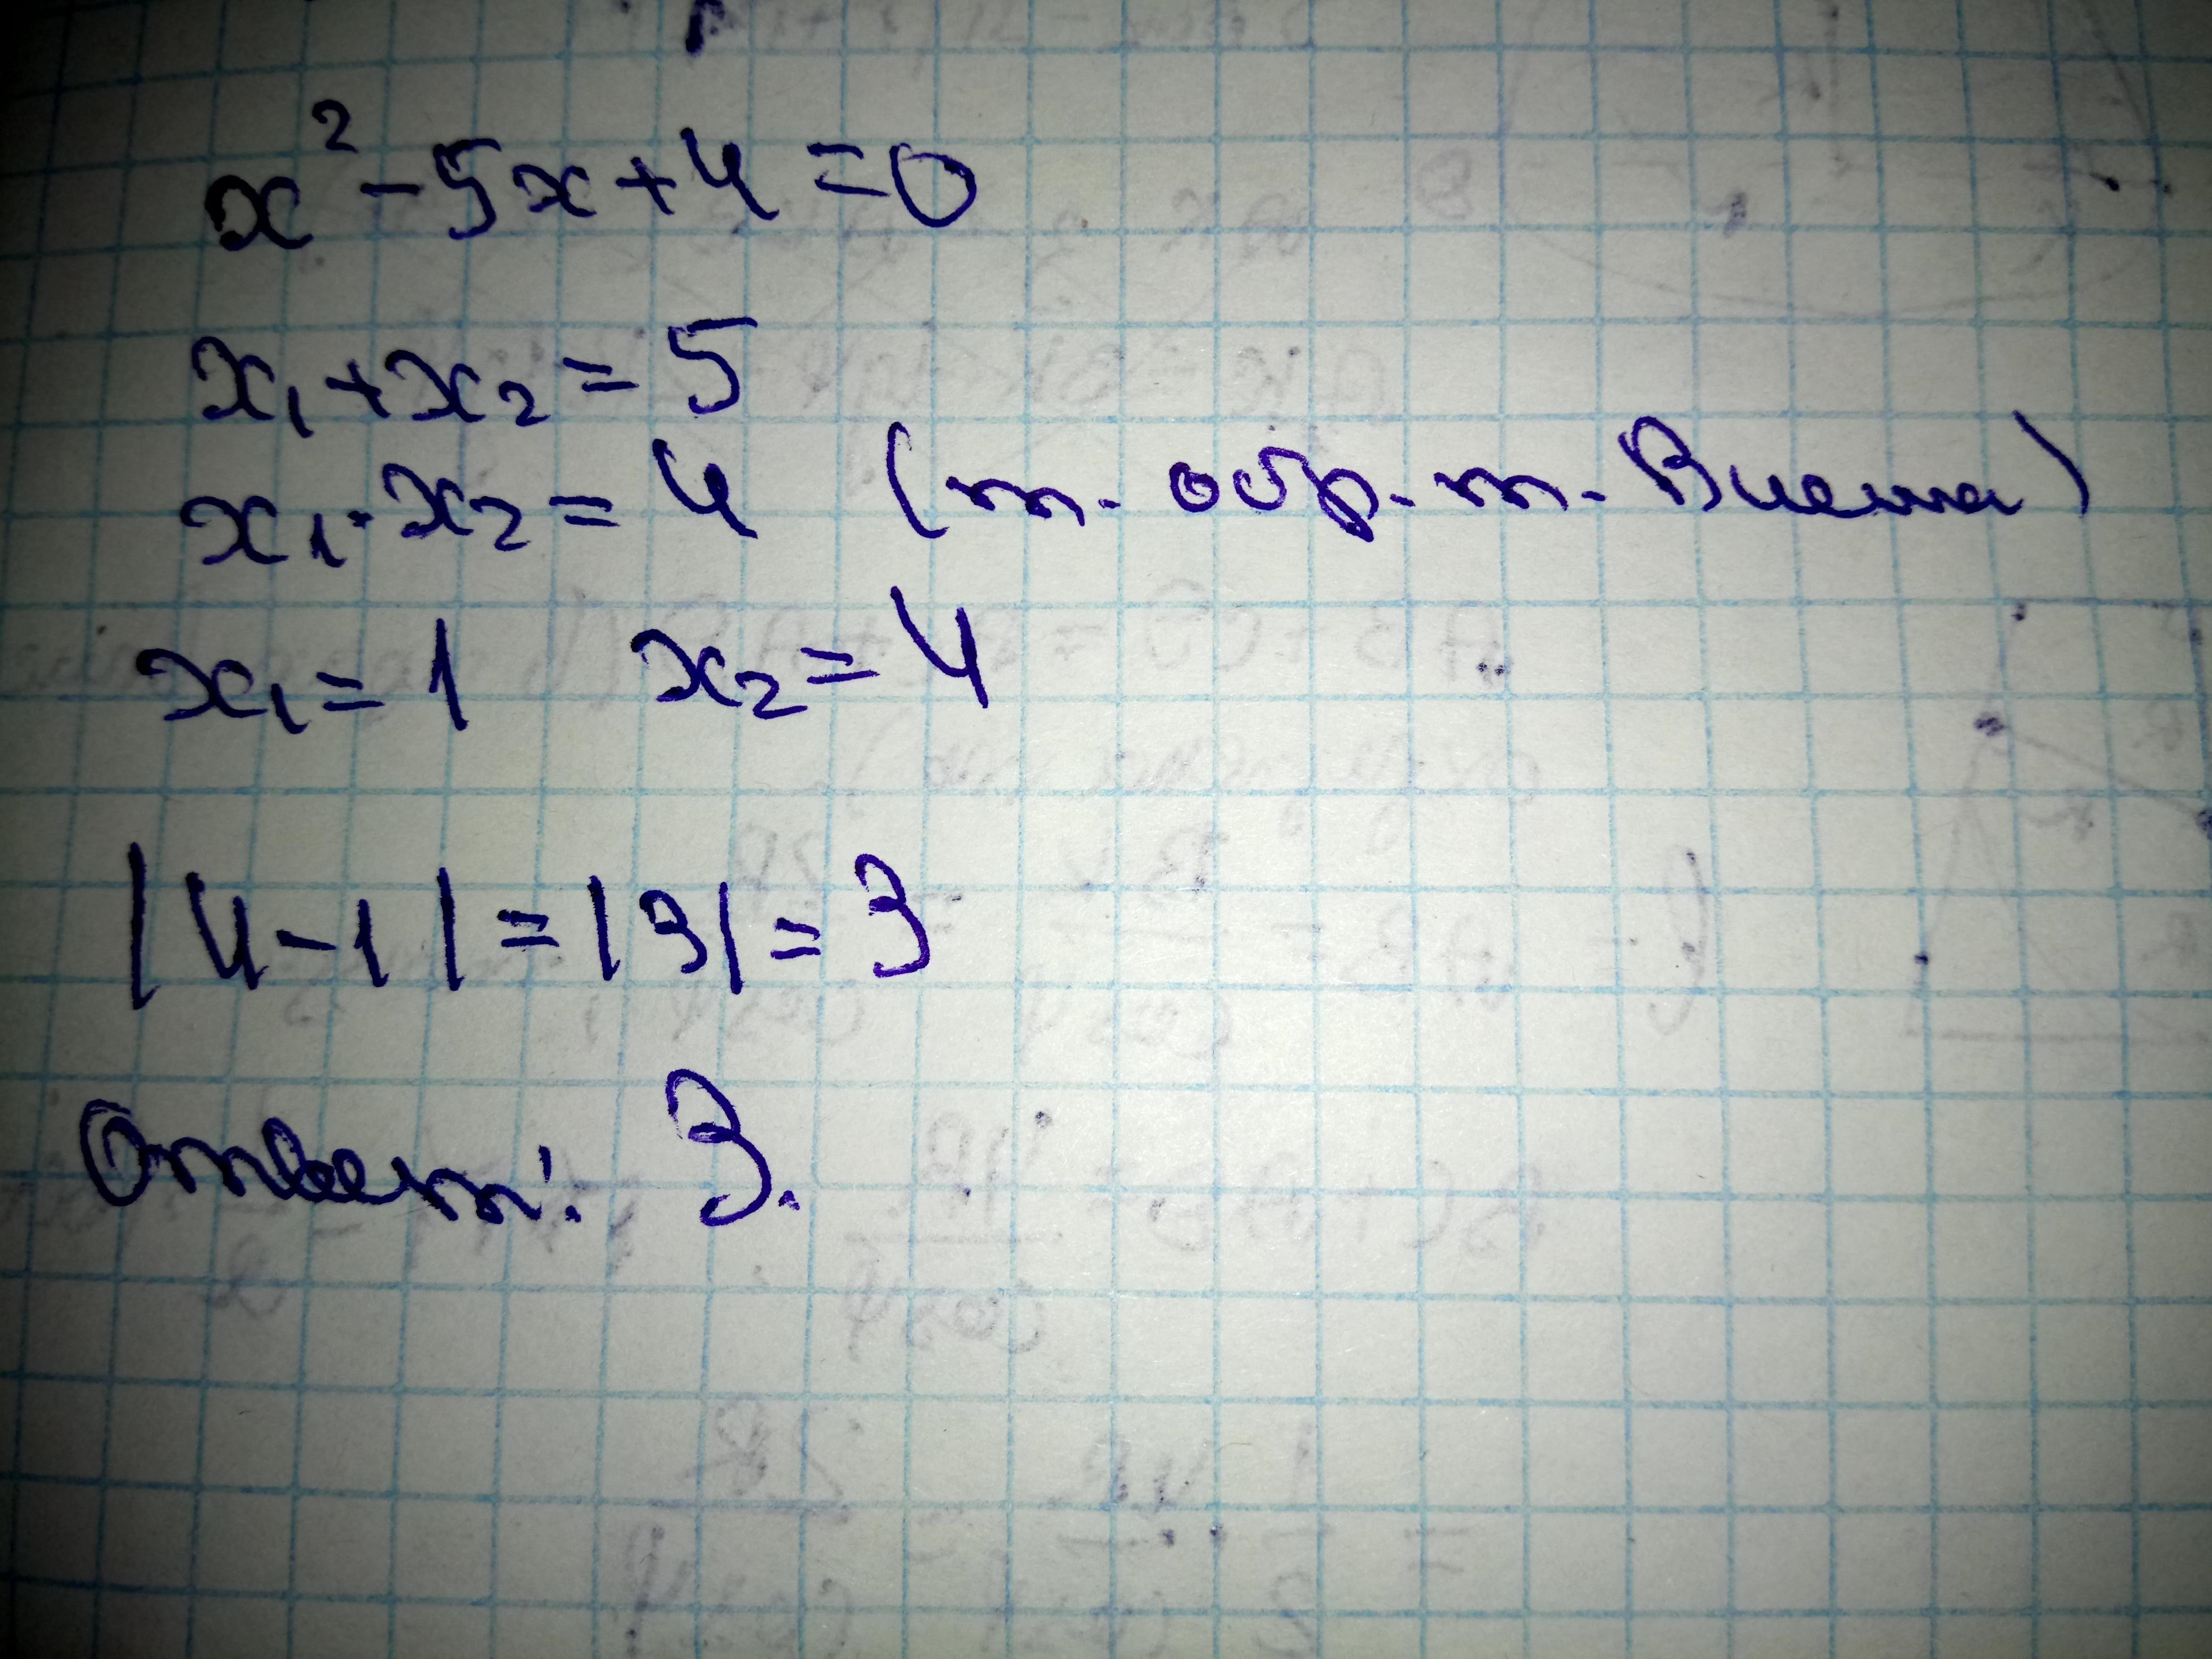 x² - 5x + 4 = 0
x₁ + x₂ = 5
x₁ · x₂ = 4 (т. обр. т. Виета)
x₁ = 1 x₂ = 4
|4 - 1| = |3| = 3
Ответ: 3.